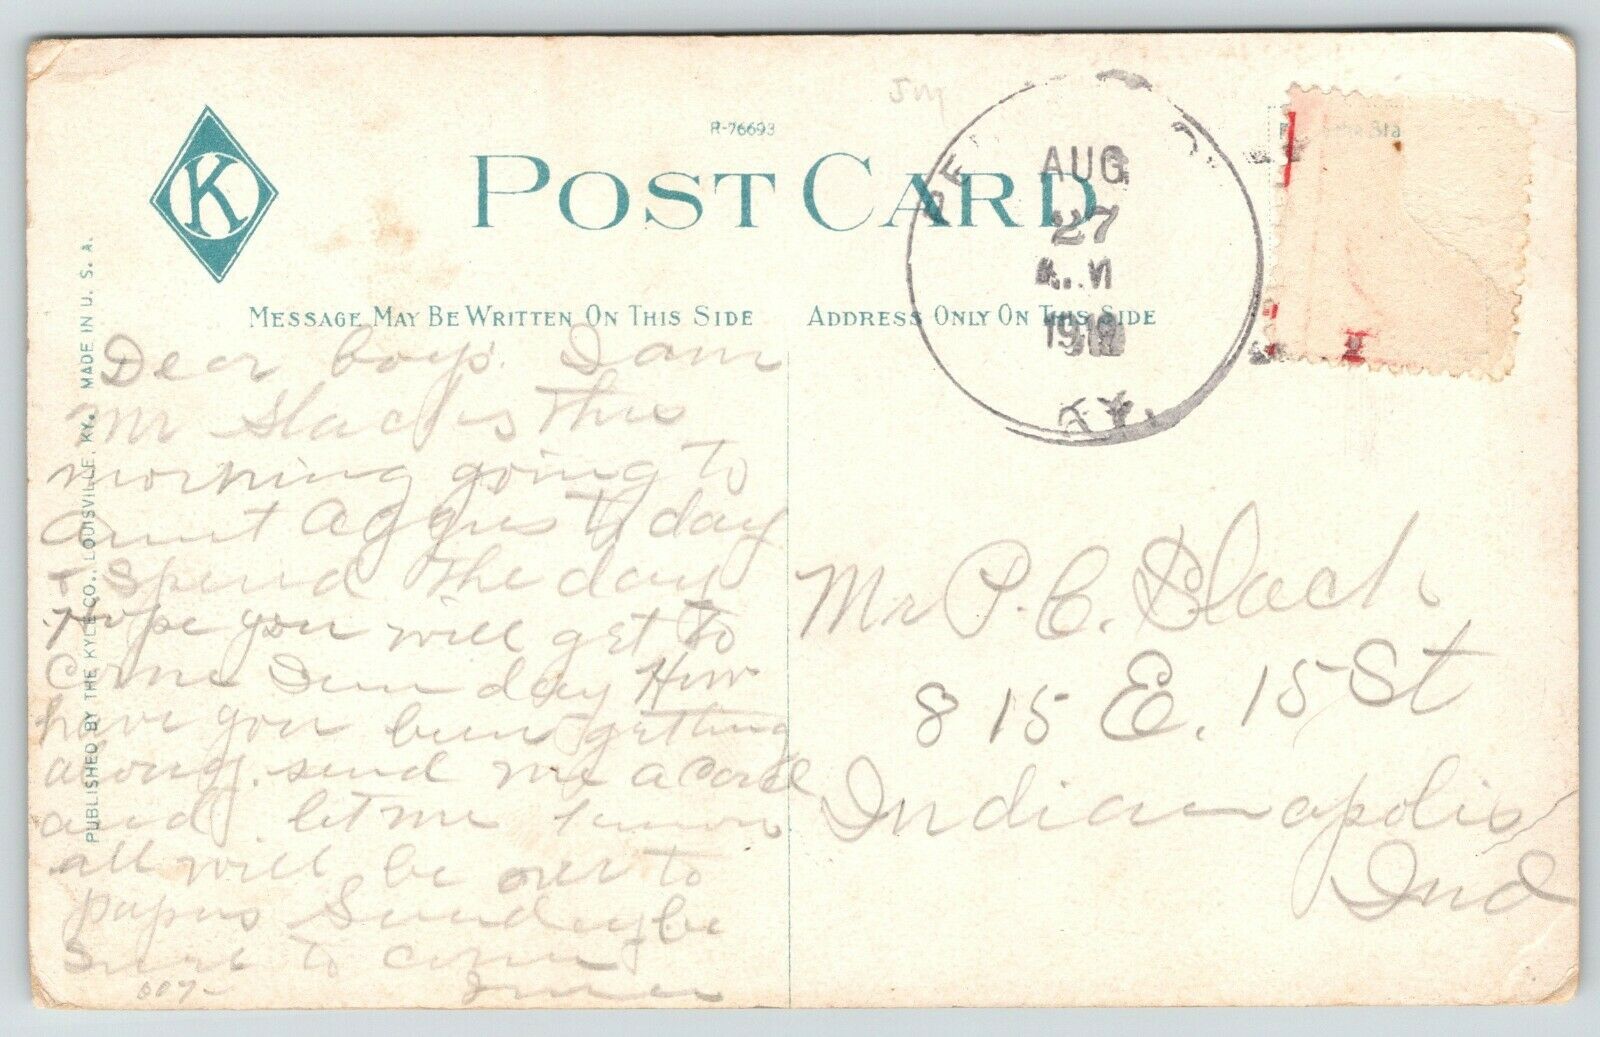 R-76693
POST CARD
K
MESSAGE MAY BE WRITTEN ON THIS SIDE
ADDRESS ONLY ON THIS SIDE
PUBLISHED BY THE KYLE CO., LOUISVILLE, KY. MADE IN U. S. A.
AUG
27
A.M
KY.
Dear boys. I am
Mr Slacks this
morning going to
aunt Aggies to day
+ spend the day
Hope you will get to
Come Sun day How
have you been getting
along. send me a Card
and let me know
all will be over to
papas Sunday be
Sure to come
007-
Mr P. C. Slack
815 E. 15 St
Indianapolis
Ind